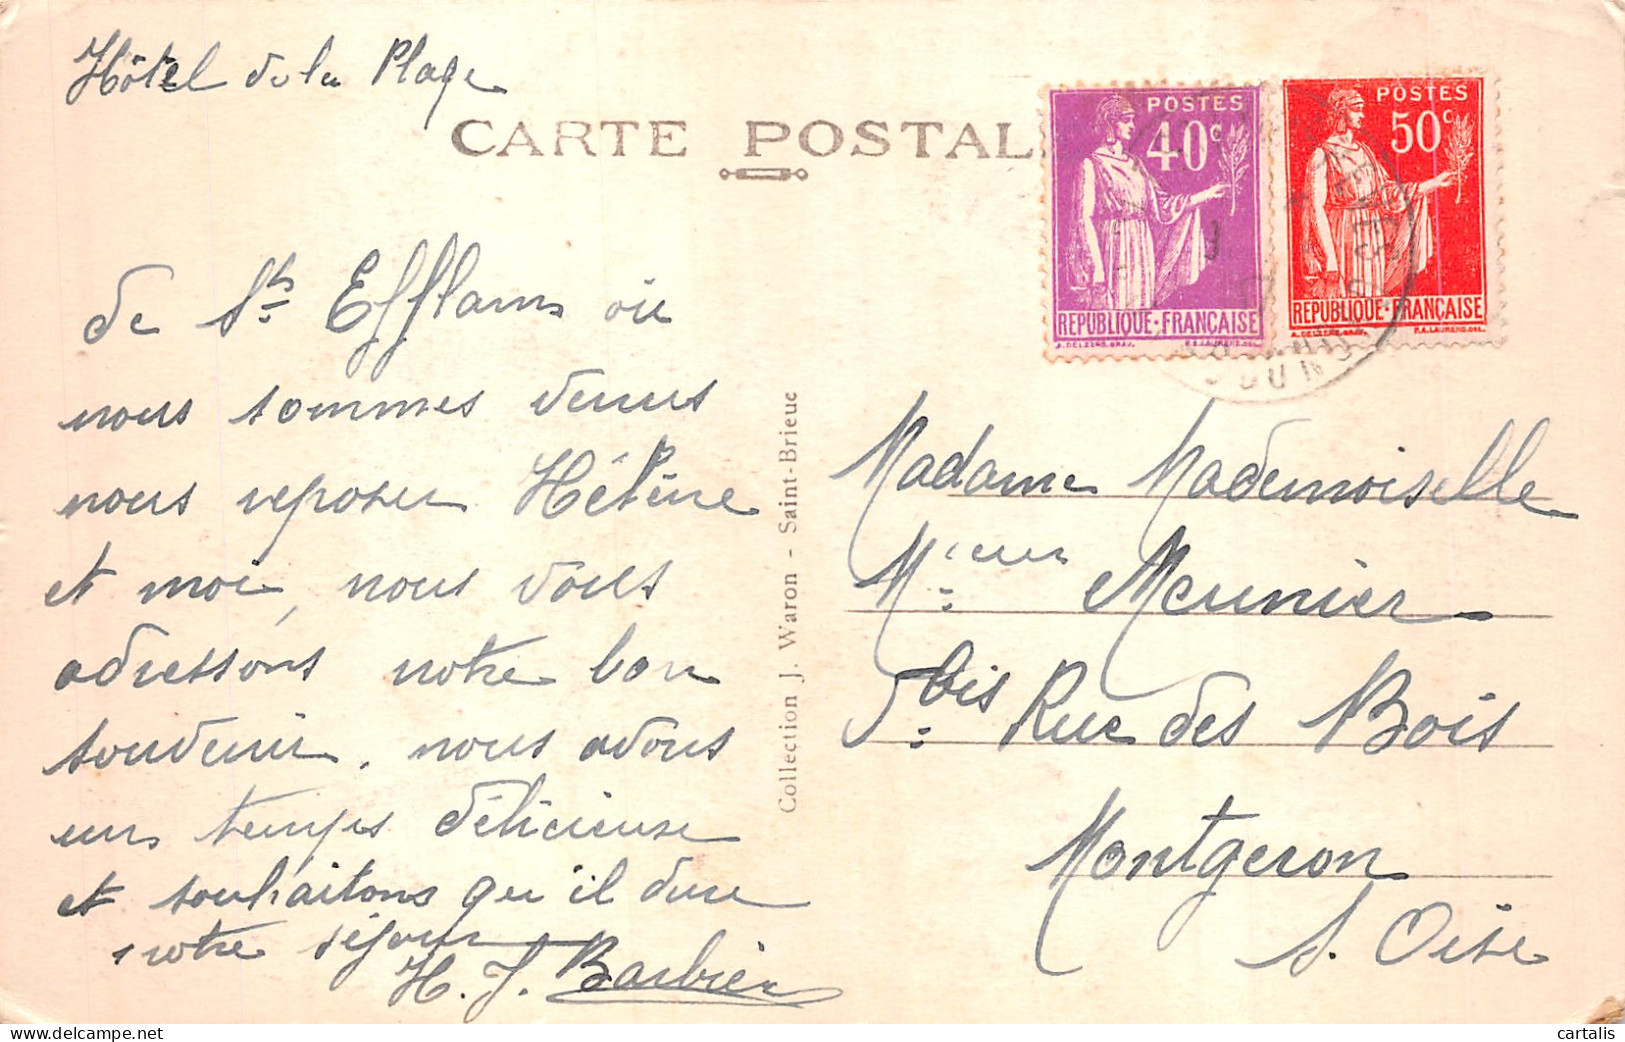 Hôtel de la Plage
CARTE POSTAL
POSTES
40c
REPUBLIQUE·FRANÇAISE
POSTES
50c
REPUBLIQUE·FRANÇAISE
de St Efflam où
nous sommes venus
nous reposer Hélène
et moi, nous vous
adressons notre bon
souvenir. nous avons
un temps délicieuse
et souhaitons qu'il dure
notre séjour
H. J. Barbier
Collection J. Waron - Saint-Brieuc
Madame Mademoiselle
Mr Meunier
5 bis Rue des Bois
Montgeron
S. Oise
cartalis